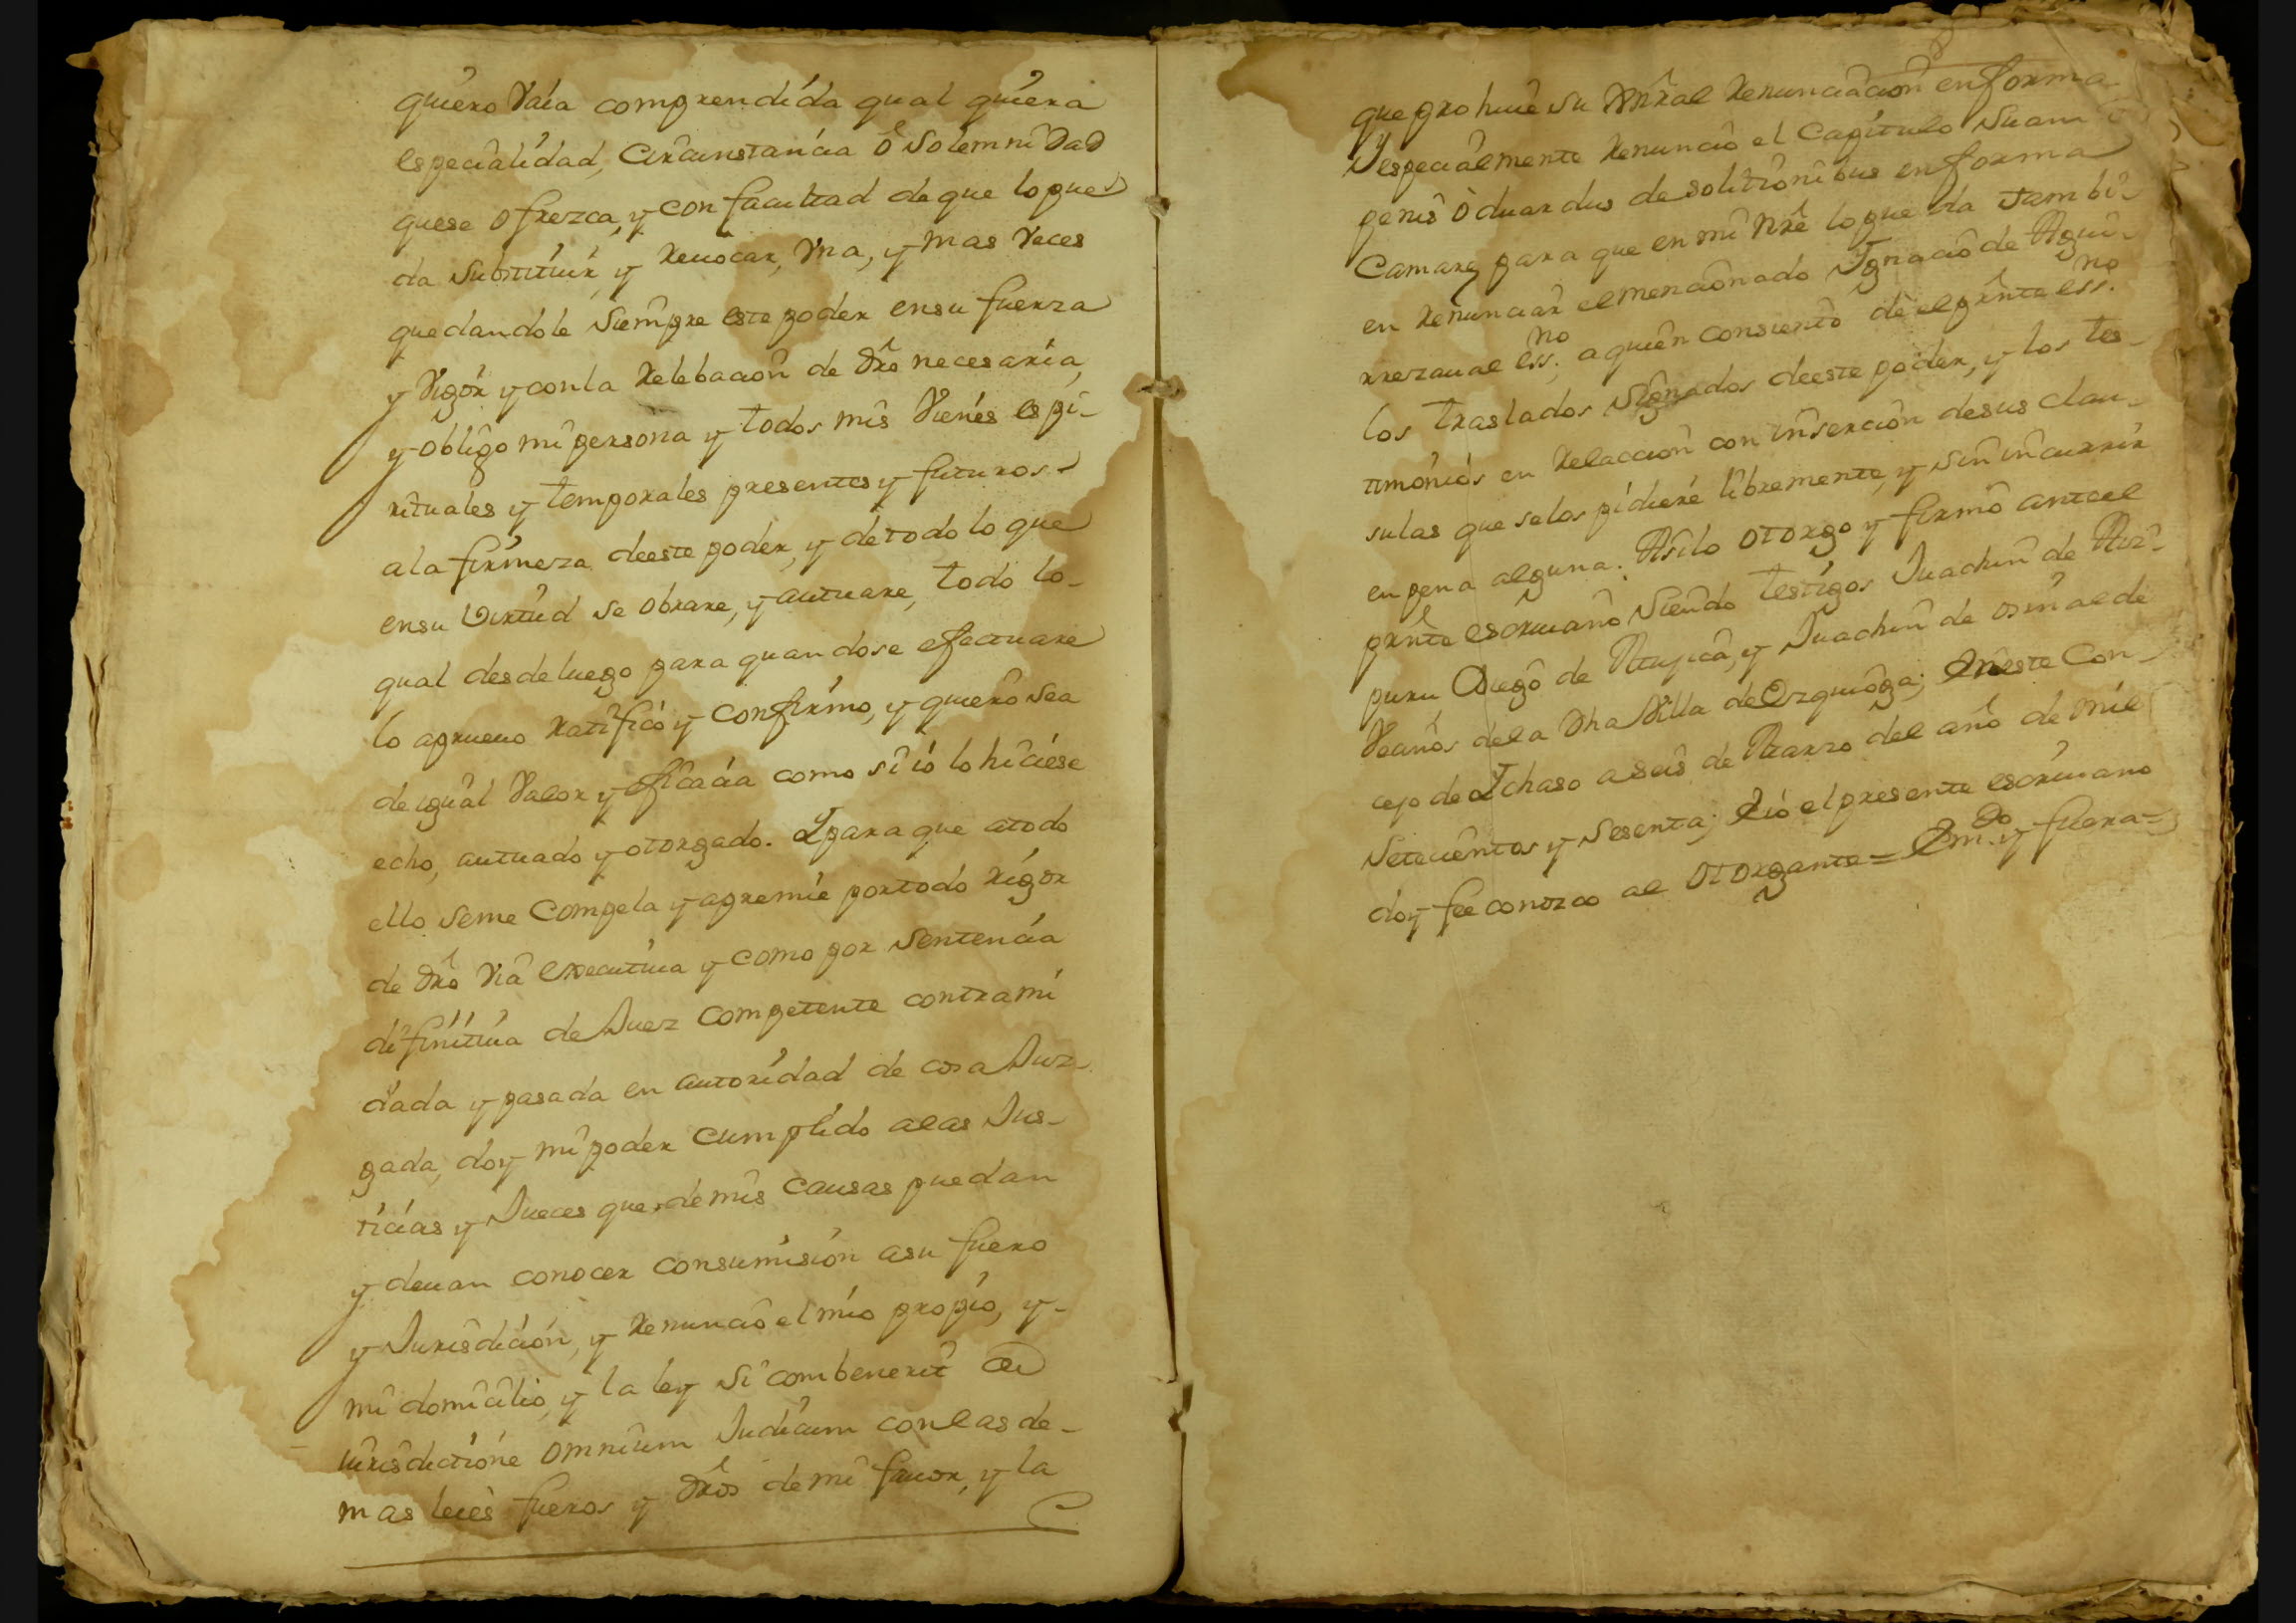 quiero Vaia comprendida qual quiera
especialidad, Circunstancia ô Solemnidad
quese ofrezca, y con facultad de que lo pue
da Substituir, y Reuocar, Vna, y mas Veces
quedandole Siempre este poder ensu fuerza
y Vigor y conla Relebacion de dro necesaria,
y obligo mi persona y todos mis Vienes espi-
rituales y temporales presentes y futuros
ala firmeza deeste poder, y de todo lo que
ensu Virtud se obrare, y autuare, todo lo-
qual desde luego para quando se efectuare
lo aprueuo Ratifico y Confirmo, y quiero sea
de igual Valor y eficacia como si io lo hiciese
echo, autuado y otorgado. Y para que atodo
ello seme Compela y apremie portodo Rigor
de dro Via executiua y como por Sentencia
difinitiua de Juez Competente contrami
dada y pasada en autoridad de cosa Juz-
gada, doy mi poder Cumplido alas Jus-
ticias y Jueces que de mis Causas puedan
y deuan conocer consumision asu fuero
y Jurisdicion, y Renuncio el mio propio, y-
mi domicilio, y la ley Si combenerit de
iurisdictione omnium Judicum conlas de-
mas leies fueros y dros de mi fauor, y la
que prohiue su Renunciacion en forma
y especialmente Renuncio el Capitulo Suam
penis ôduardus de solutionibus en forma
Camare para que en mi Nre lo pueda tambi-
en Renunciar el mencionado Ignacio de Agui-
rrezaual Essno, a quien consiento de el prnte essno
los traslados Signados deeste poder, y los tes-
timonios en Relaccion con insercion desus clau-
sulas que selos pidiere libremente, y sin incurrir
en pena alguna. Asilo otorgo y firmo anteel
prnte escriuano Siendo testigos Juachin de Azi-
puru, Diego de Mujica, y Juachin de osinalde
Vecinos dela dha Villa de Ezquioga; Eneste Con-
cejo de Ychaso a seis de Marzo del año de mil
Setecientos y Sesenta; E io el presente escriuano
doy fee conozco al otorgante= Emdo y fuera=